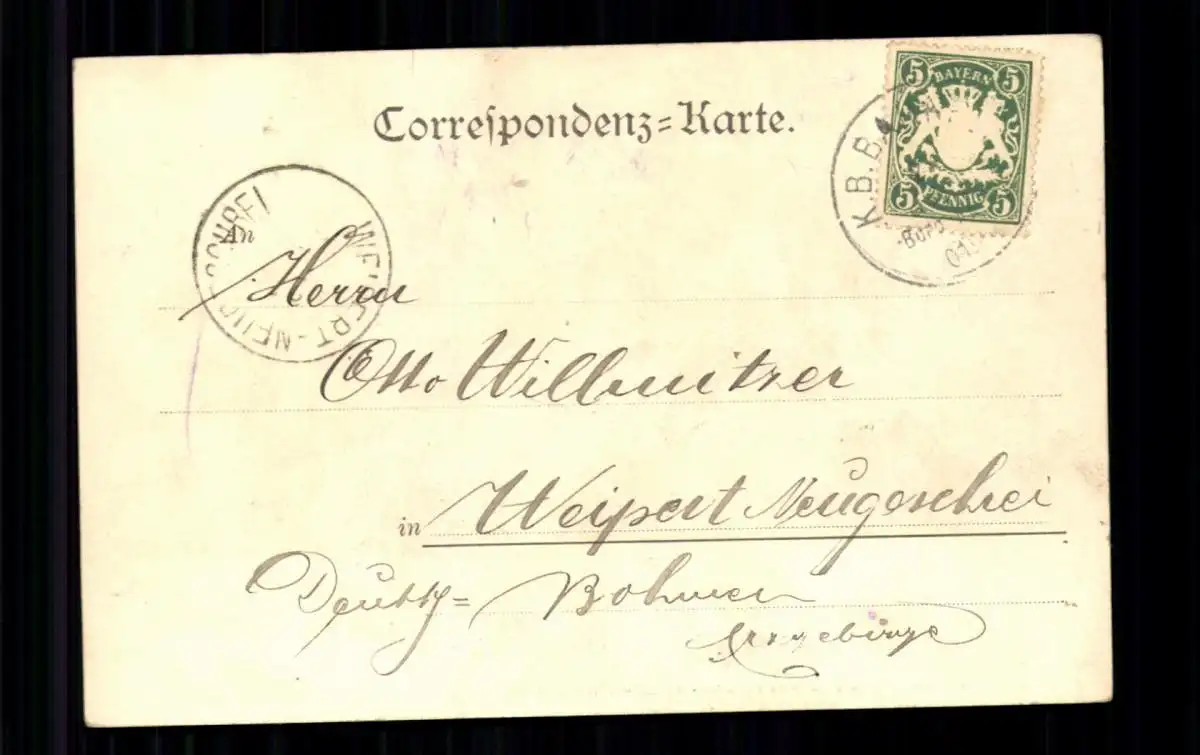 Correspondenz=Karte.
5 BAYERN 5
5 PFENNIG 5
K.B.BA
WEIPERT-NEUGESCHREI
An
Herrn
Otto Willmitzer
in Weipert Neugeschrei
Deutsch= Bohmen
Erzgebirge